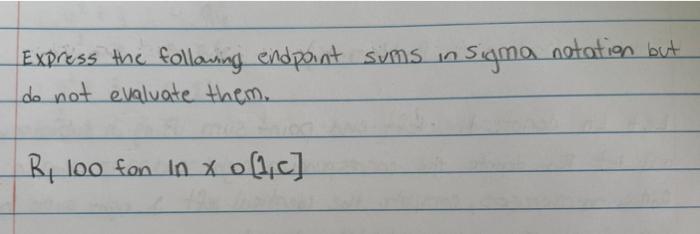 Express the following endpoint sums in sigma notation but
do not evaluate them.
R, 100 fon ln x o [1,c]